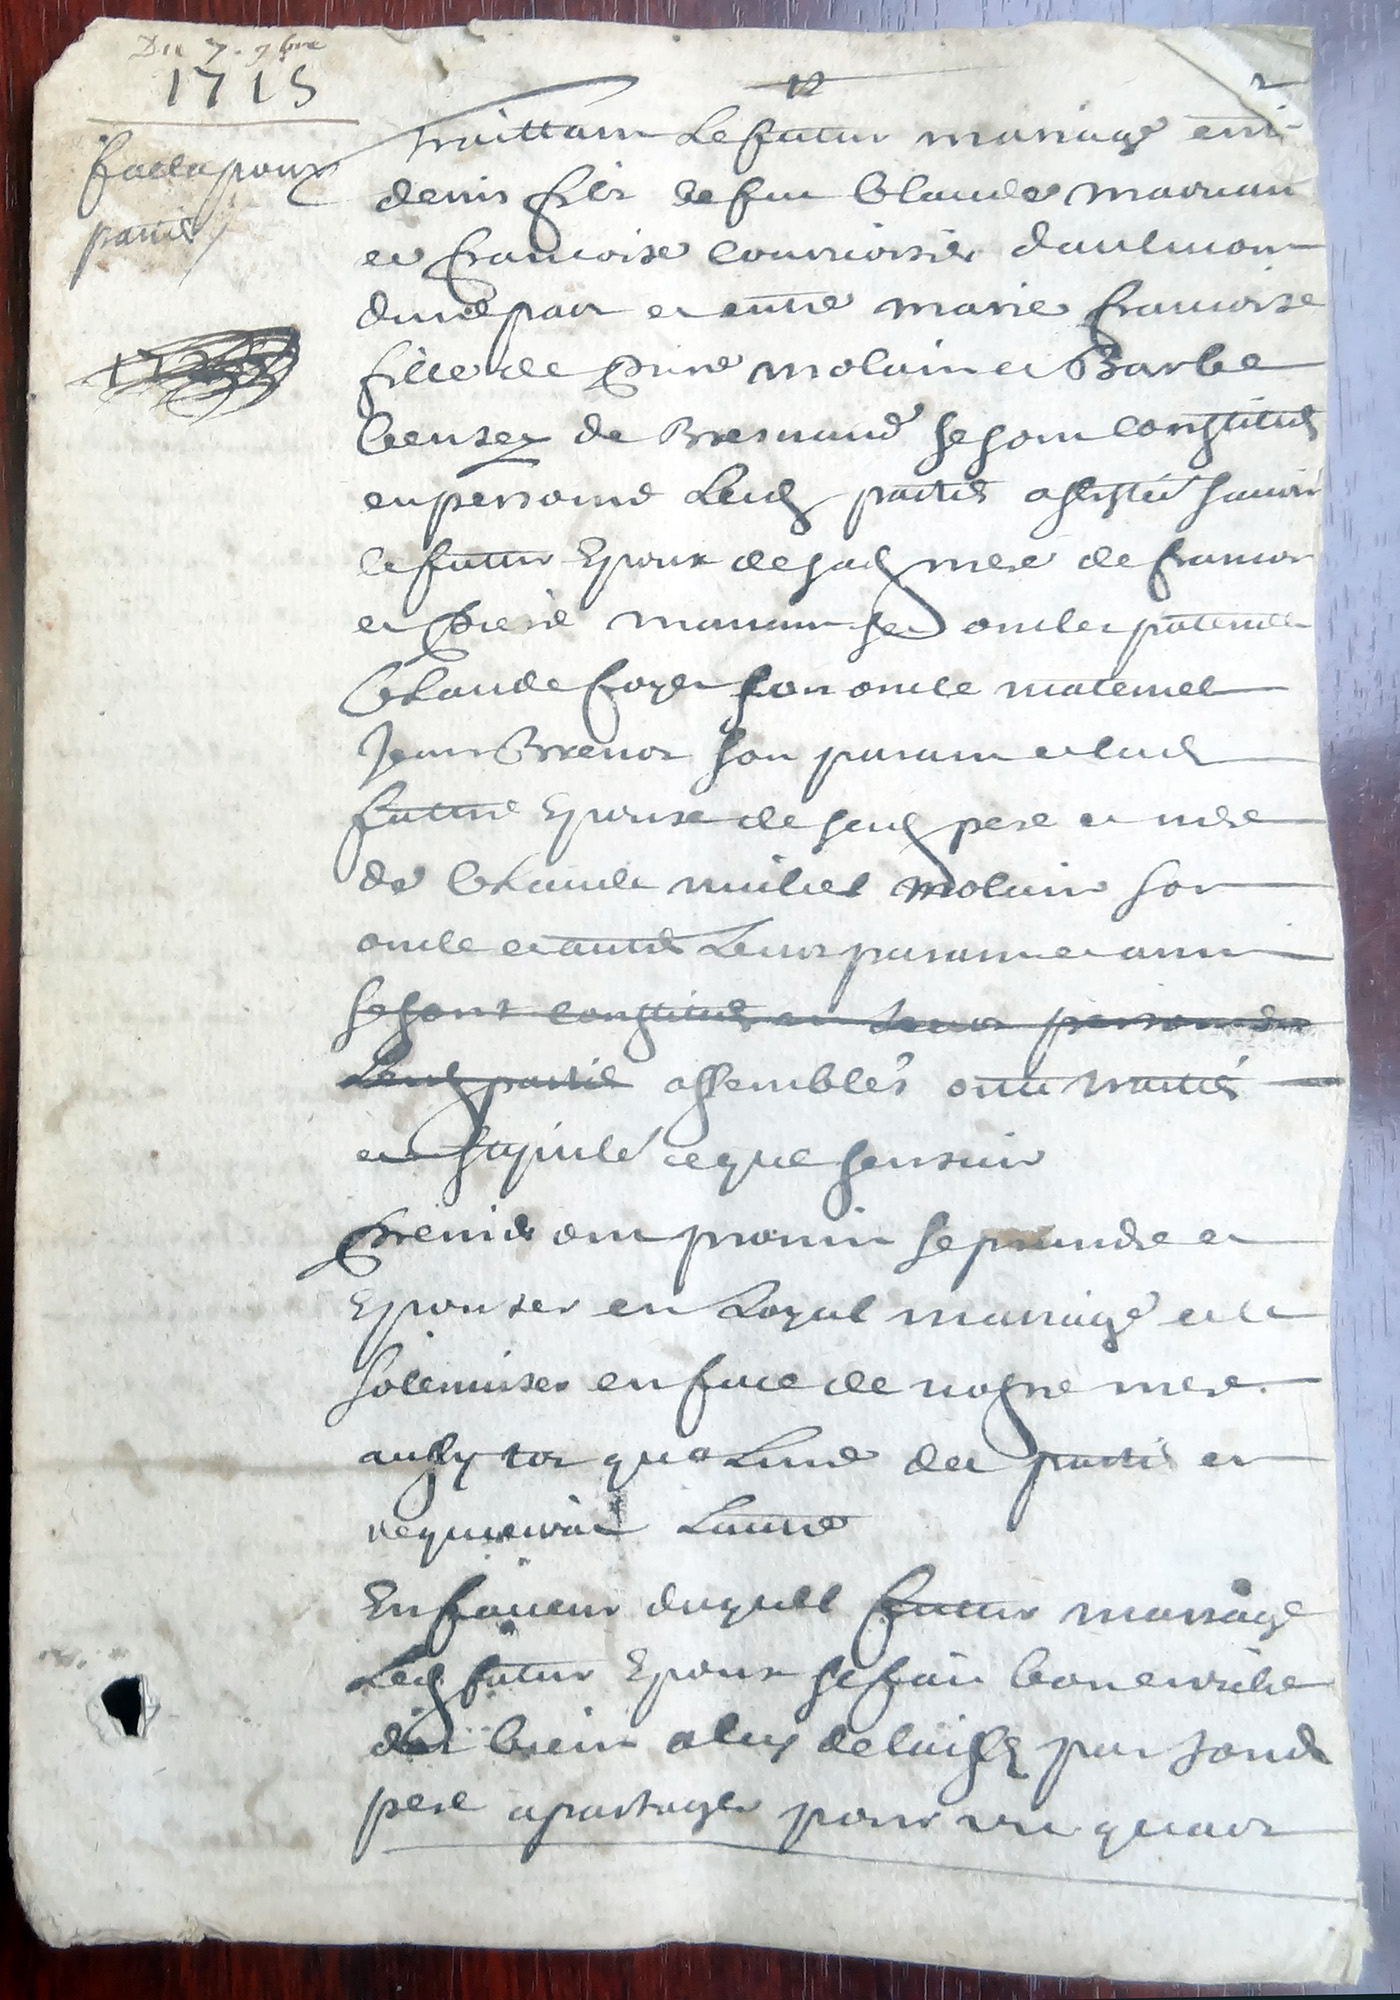 Du 7. 9bre
1715
facta pour
partie
Traittant Le futur mariage entre
denis filz de feu Claude
et francoise courvoisier
dune part et entre marie francoise
fille de Pierre molain et Barbe
de se sont constitués
en personne Lesd parties assistés scauoir
le futur Epoux de sad mere de francois
et Pierre ses oncles paternels
Claude son oncle maternel
Jean son parain et lad
future Epouse de sesd pere et mere
de Claude michel molain son
oncle et autres Leurs parans et amis
se sont constitués en Leurs personnes
Lesd parties assemblés ont traittés
et stipulé ce que sensuit
Premier ont promis se prendre et
Epouser en Loyal mariage et le
solemniser en face de nostre mere
aussy tot que Lune des parties en
requierera Lautre
En faueur duquel futur mariage
Led futur Epoux se fait bon et riche
des biens a luy delaissés par sond
pere a partager pour un quart